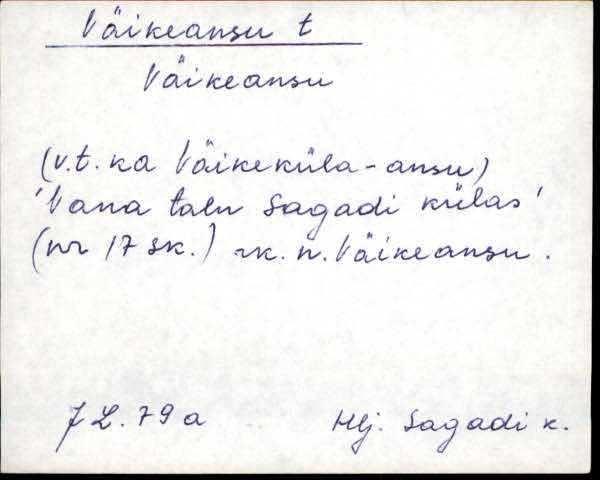 Väikeansu t
Väikeansu
(v.t. ka Väikeküla-ansu)
'Vana talu Sagadi külas'
(nr 17 sk.) rk. n. Väikeansu.
J L. 79 a
Hlj. Sagadi k.